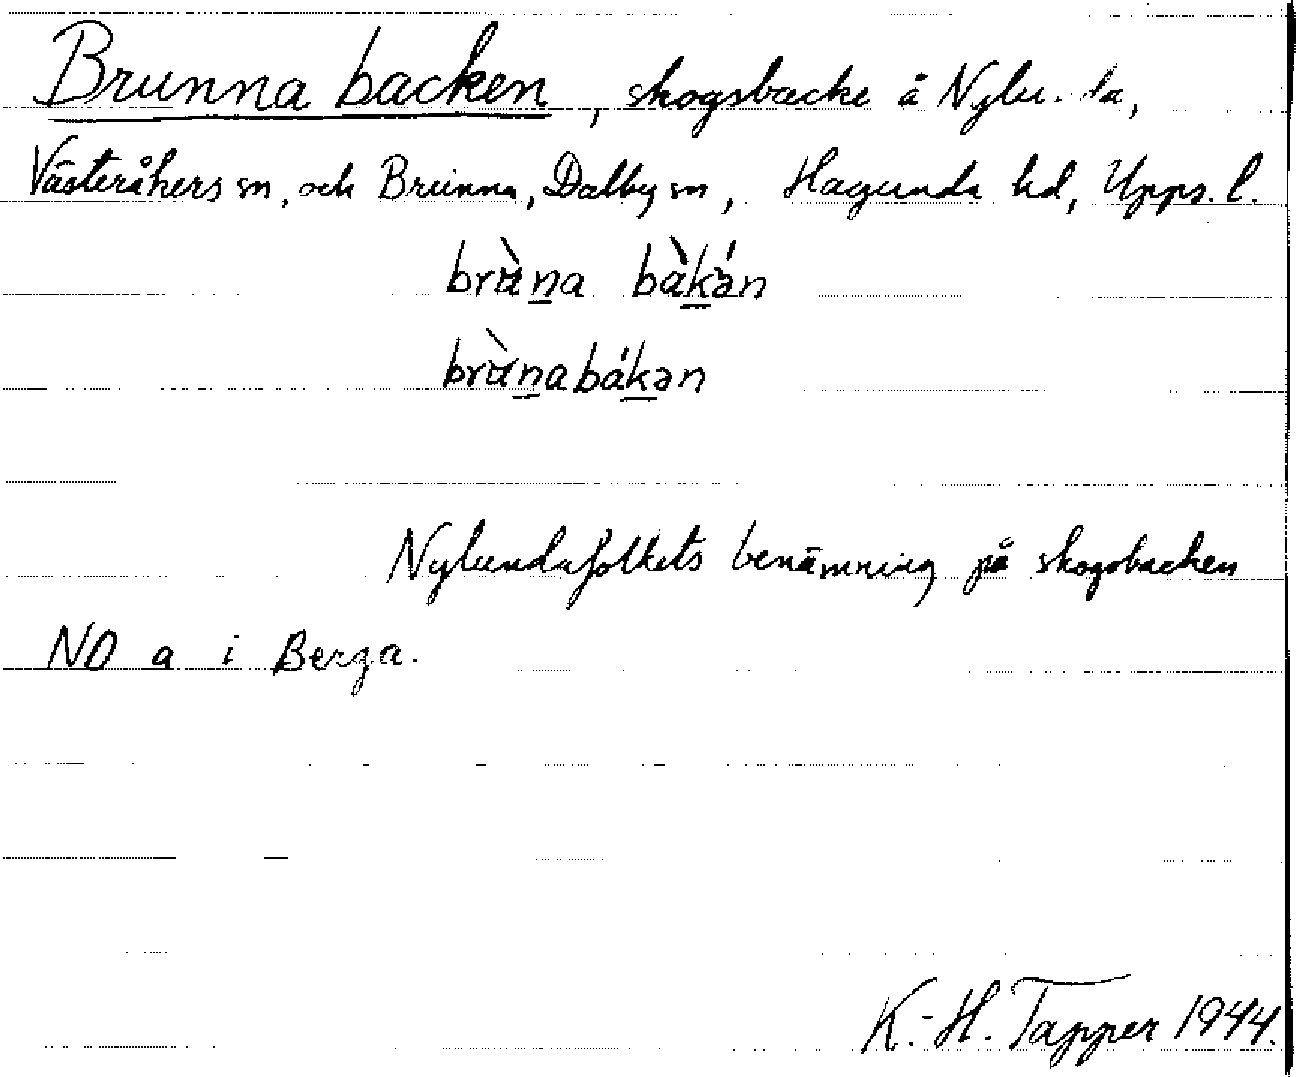 Brunna backen, skogsbacke å Nylunda,
Västeråkers sn, och Brunna, Dalby sn, Hagunda hd, Upps. l.
brùna bàkán
brùnabákən
Nylundafolkets benämning på skogsbacken
NO a i Berga.
K.-H. Tapper 1944.